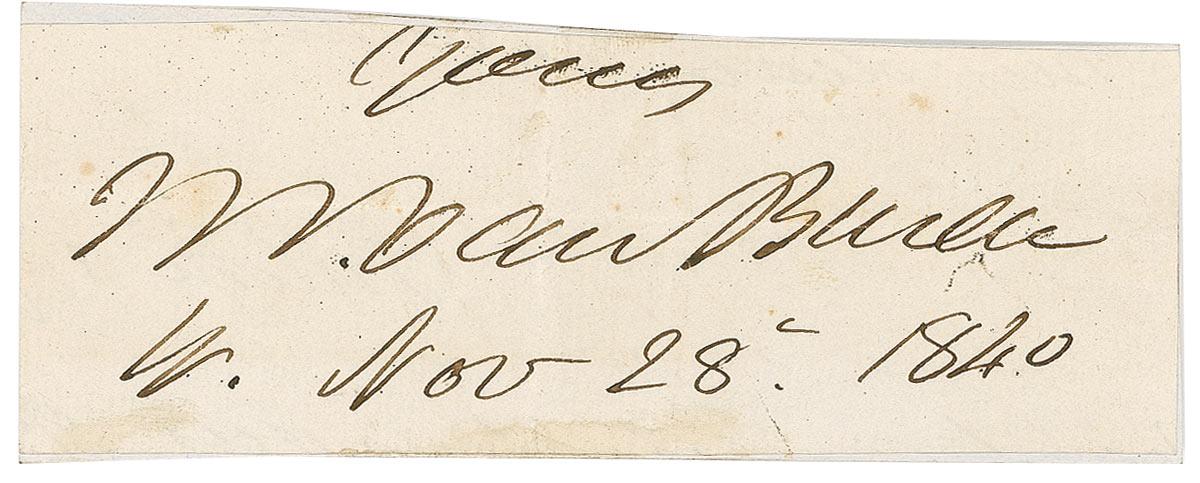 Yours
M. Van Buren
W. Nov 28. 1840